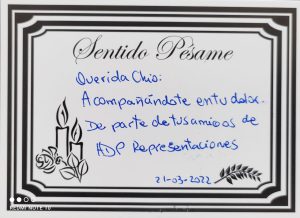 Sentido Pésame
Querida Chio:
Acompañándote en tu dolor.
De parte de tus amigos de
ADP Representaciones
21-03-2022